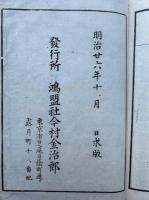 明治廿六年十一月　日求版
發行所　鴻盟社今村金治郎
東京市芝區
月町十八番地